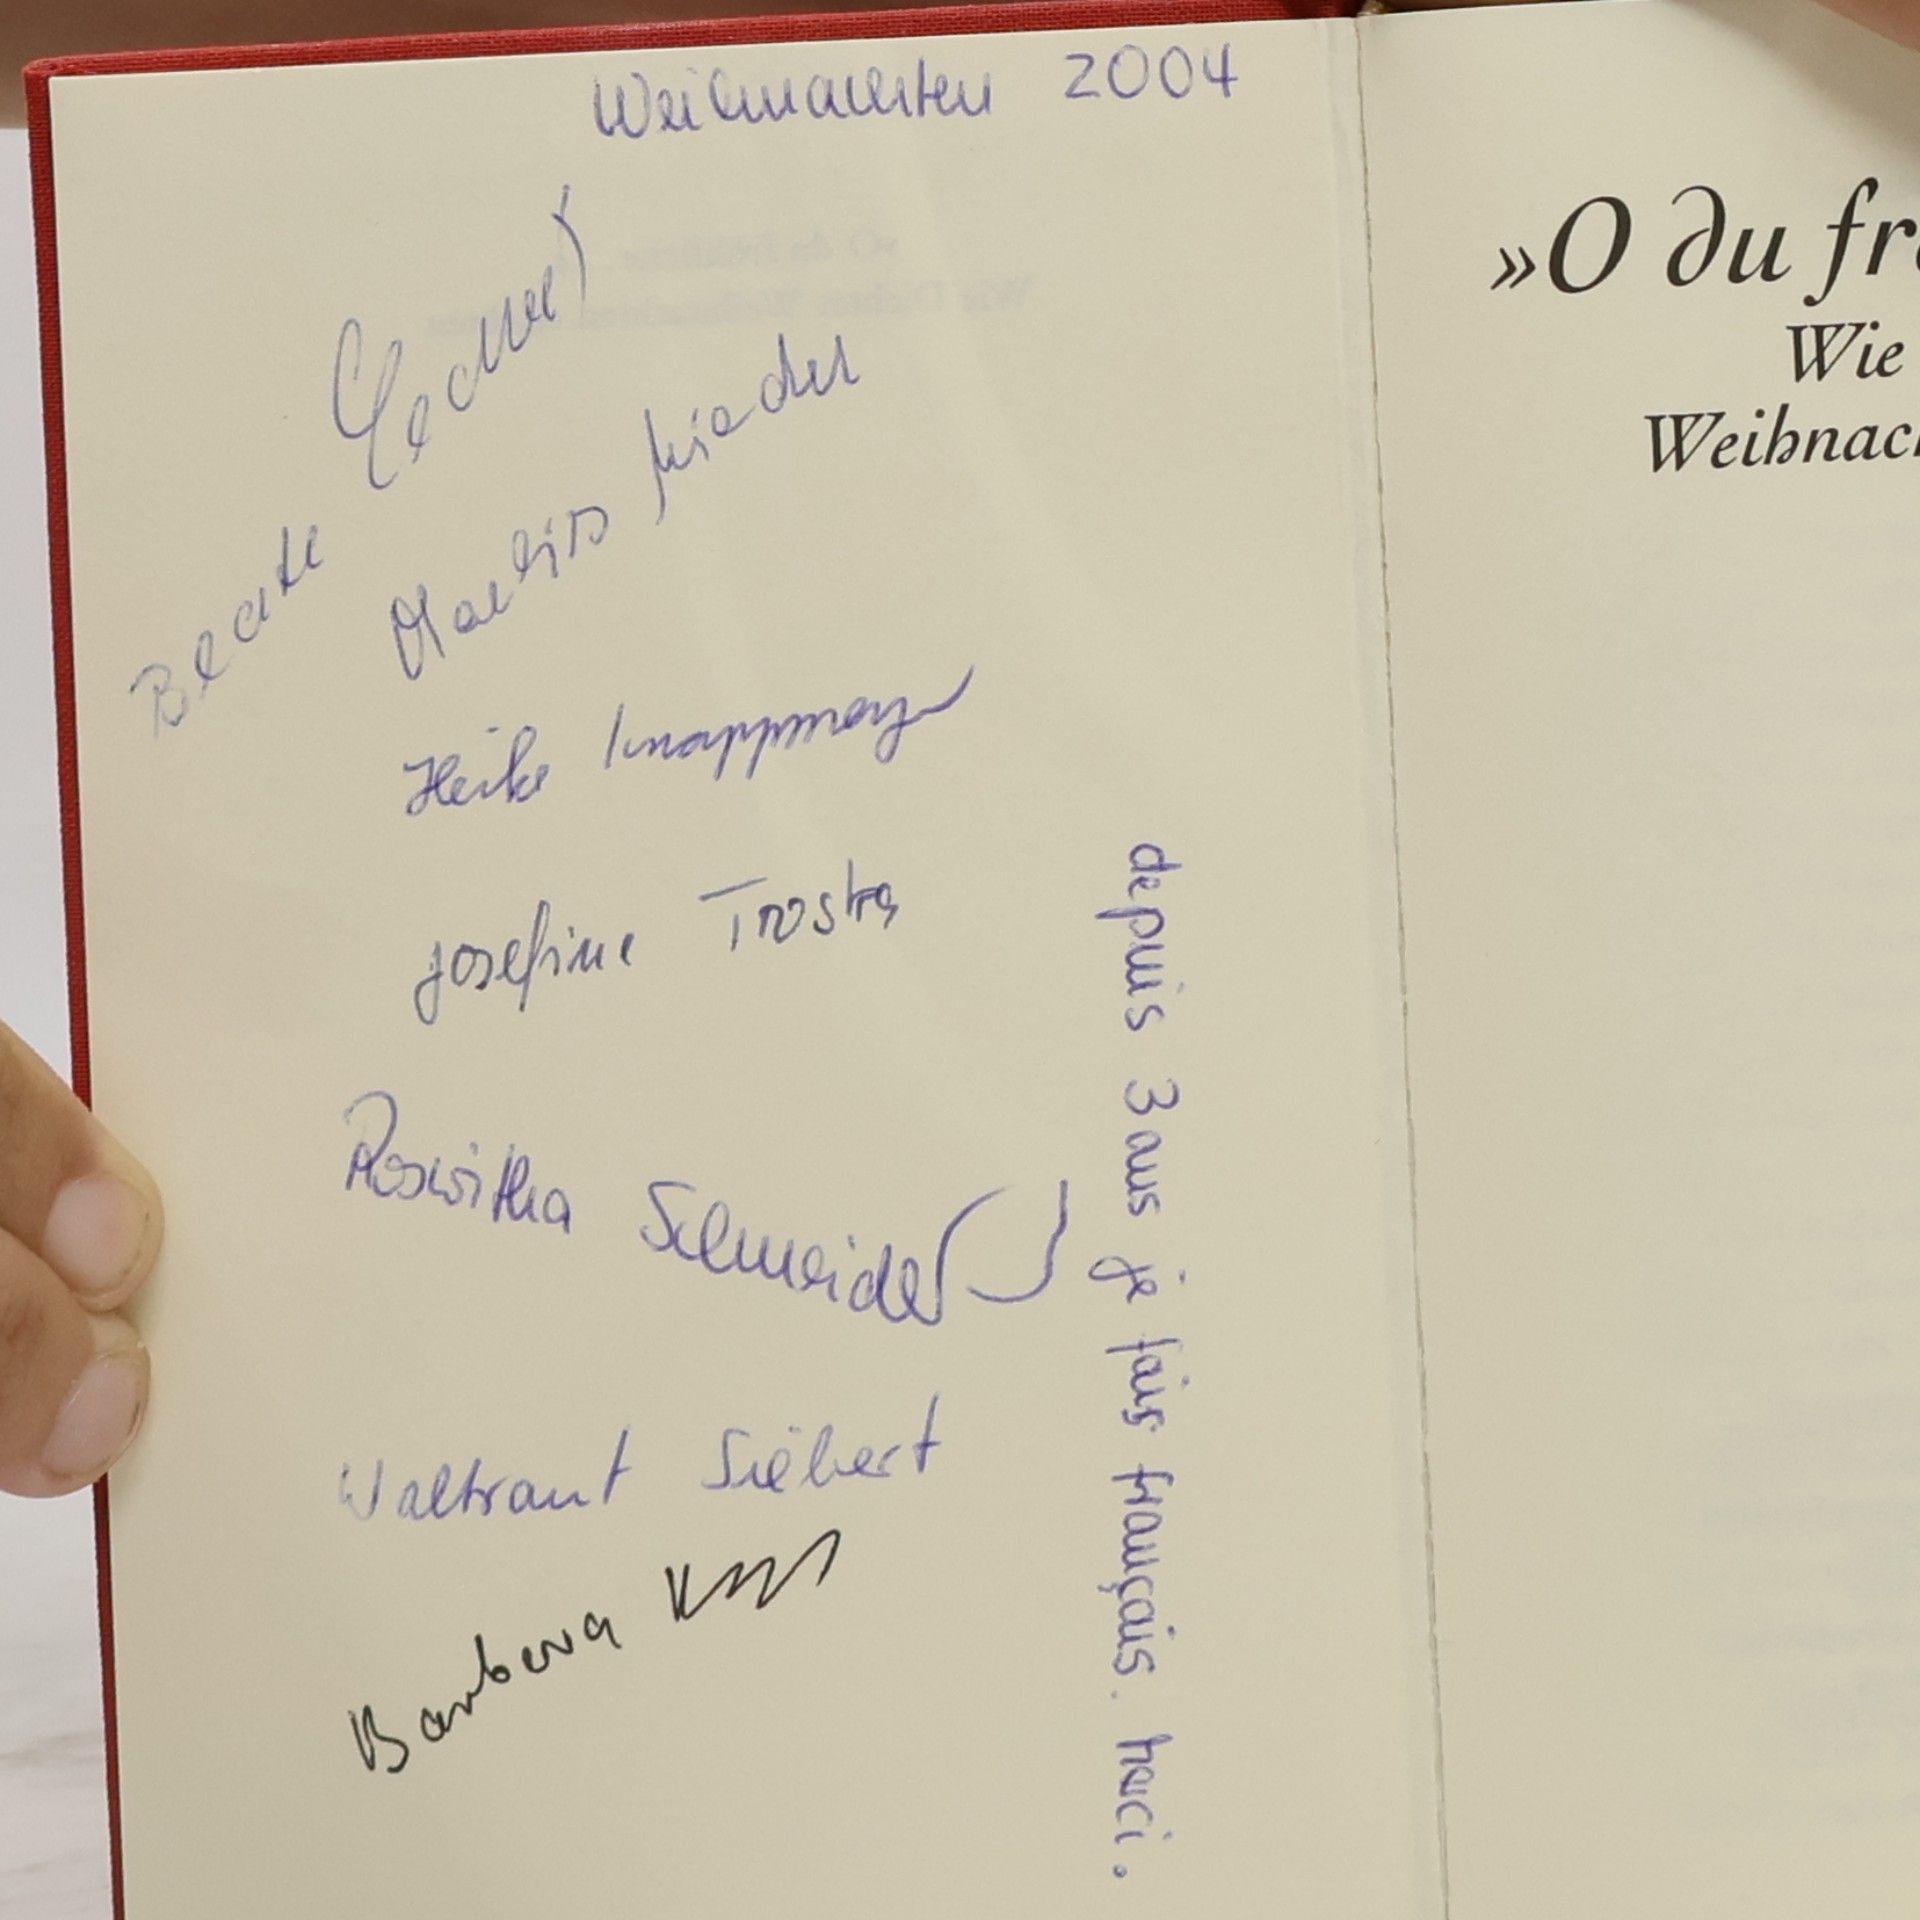 Weihnachten 2004
Beate
Marliss
Heike Knappmeyer
Josefine
Roswitha Schneider
Waltraut Siebert
Barbara
depuis 3 ans je fais français. merci.
»O du fr
Wie
Weihnac